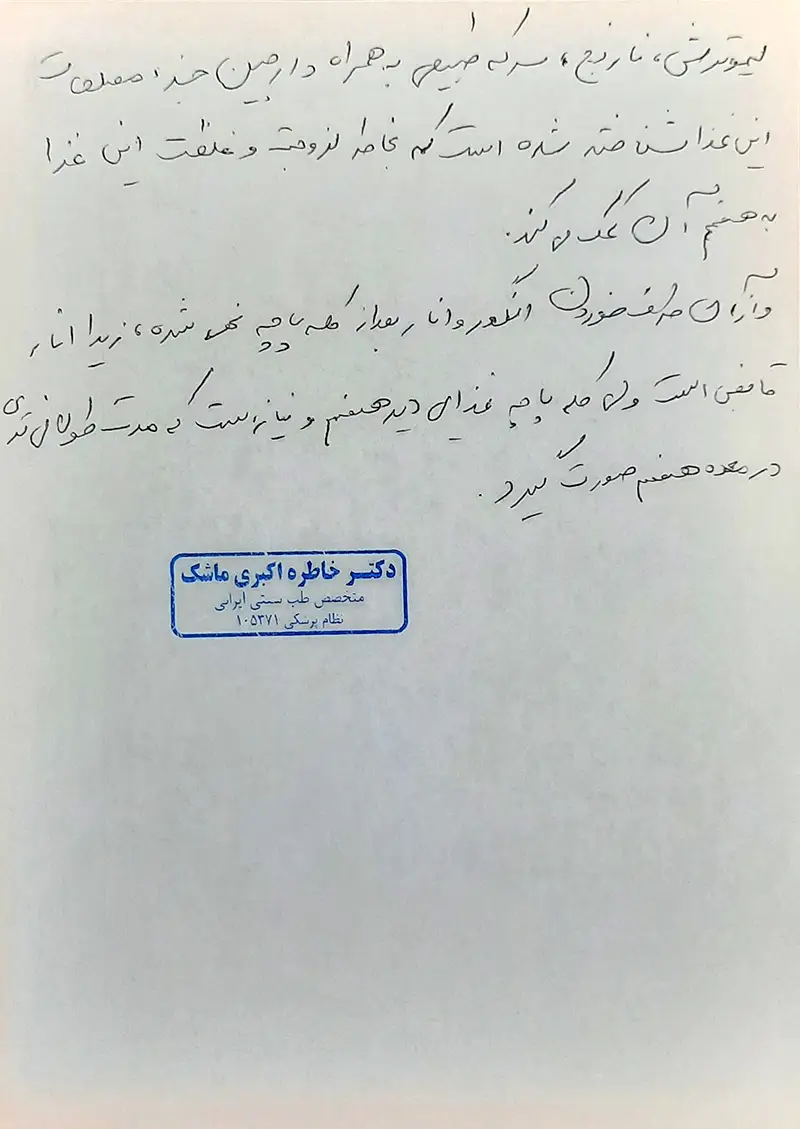 لیموترش، نارنج، سرکه طبیعی به همراه دارچین جزء مصلحات
این غذا شناخته شده است که بخاطر لزوجت و غلظت این غذا
به هضم آن کمک می‌کند.
و از آن طرف خوردن انگور و انار بعد از کله پاچه نهی شده، زیرا انار
قابض است ولی کله پاچه غذای دیر هضم و نیاز است که مدت طولانی تری
در معده هضم صورت گیرد.
دکتر خاطره اکبری ماشک
متخصص طب سنتی ایرانی
نظام پزشکی ۱۰۵۳۷۱